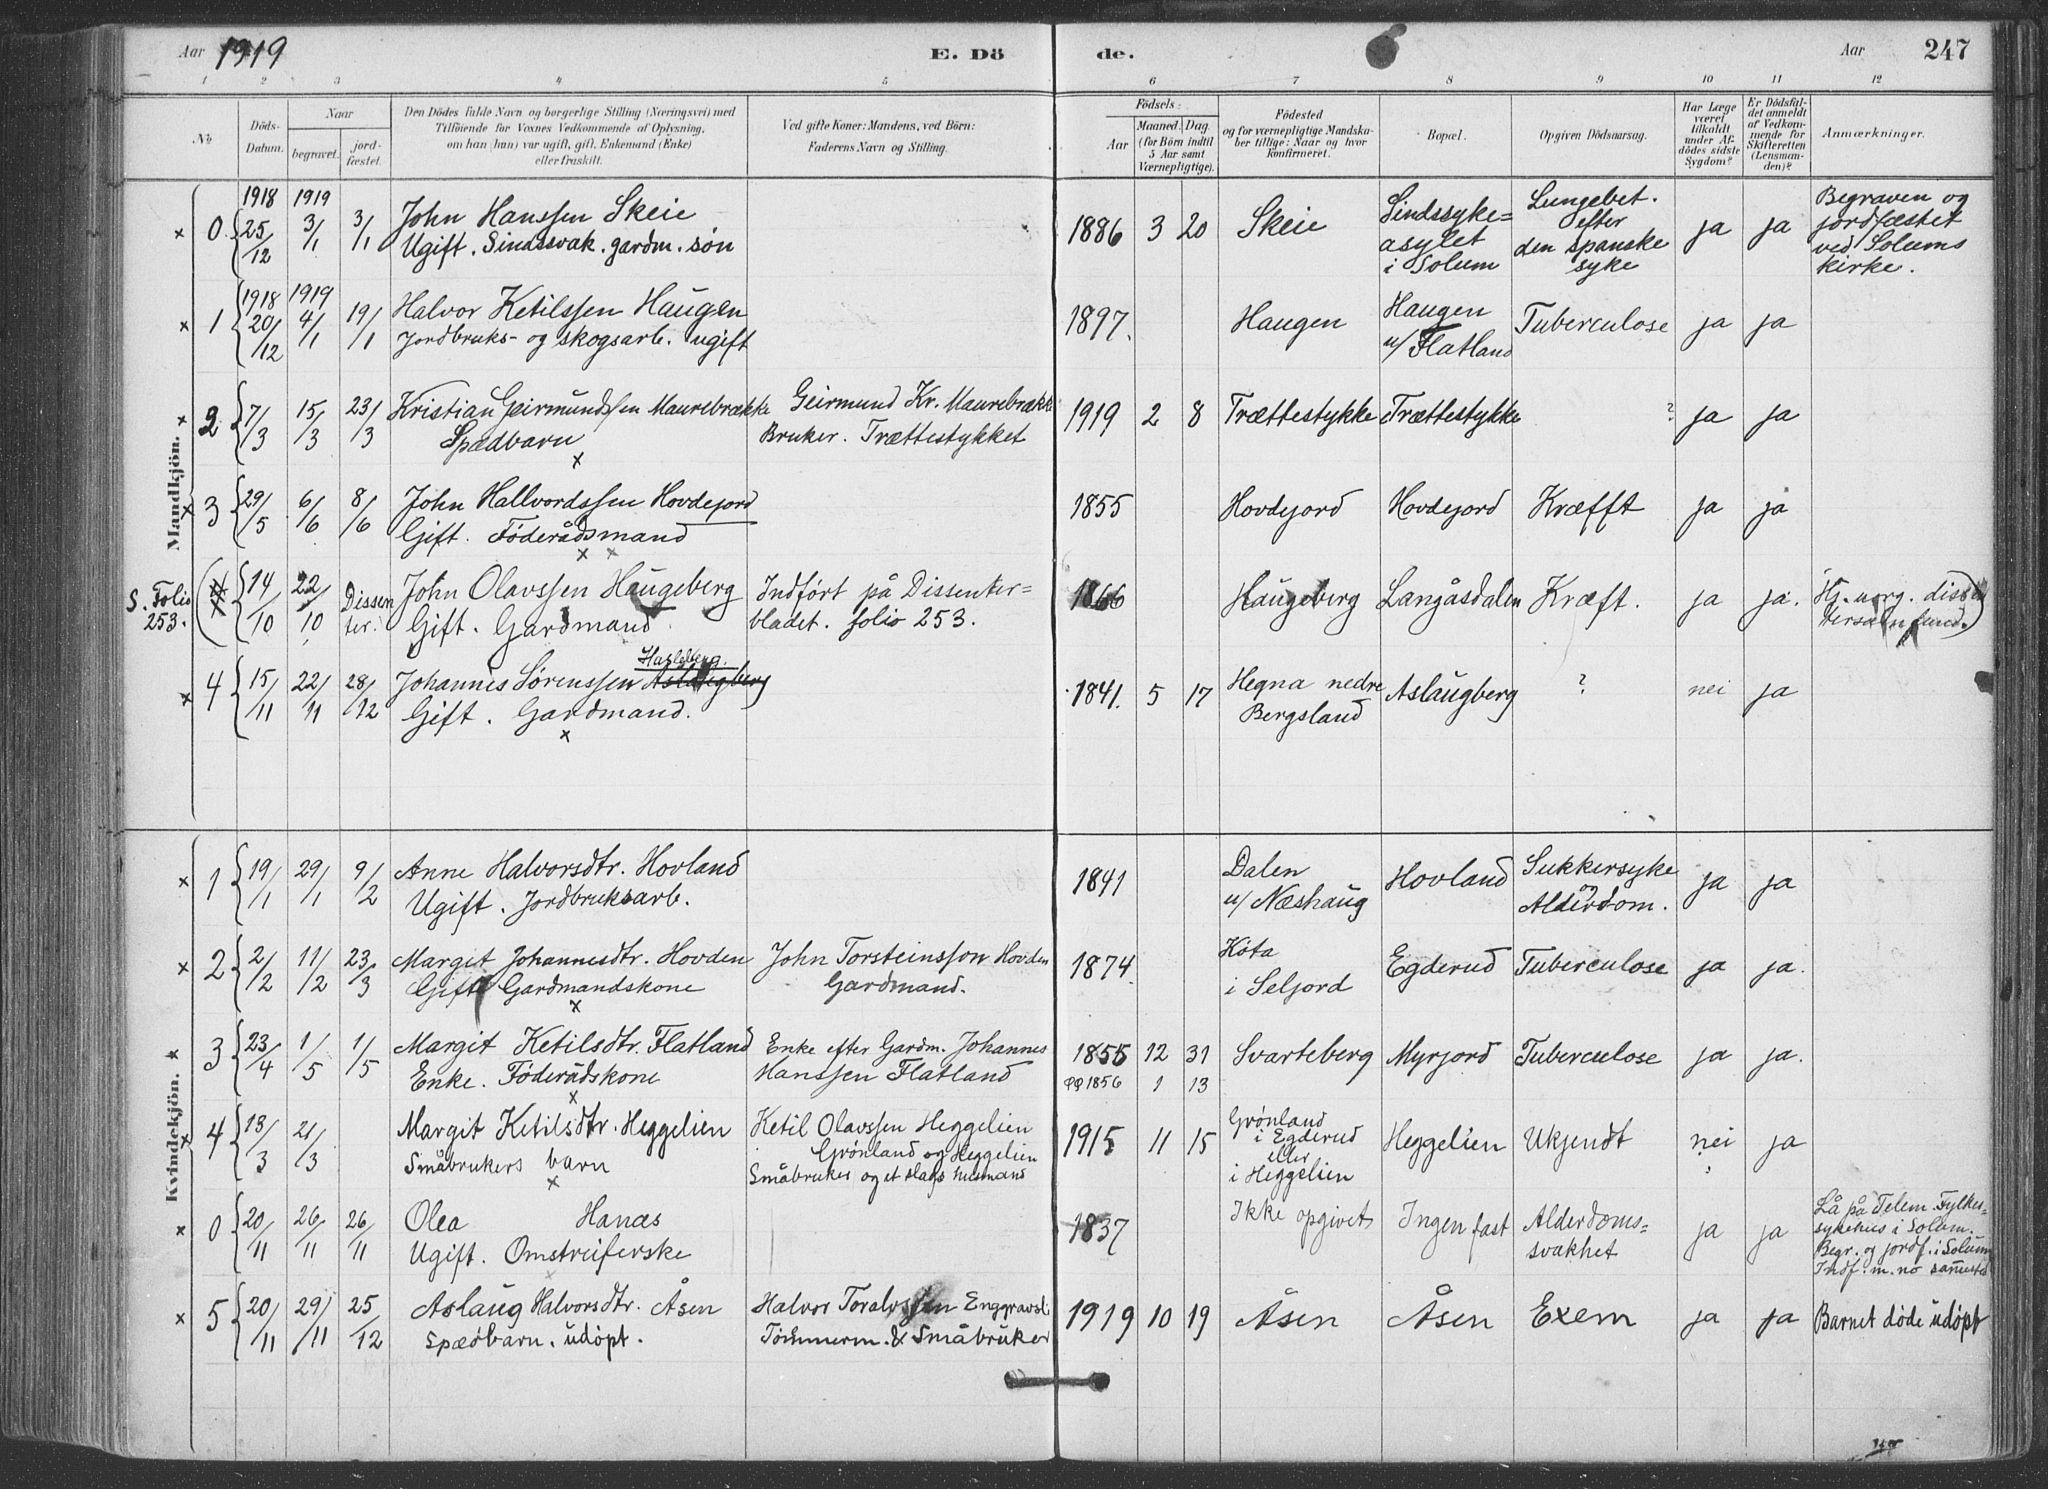 Aar 1919 E. Dö de. Aar 247
1 2 3 4 5 6 7 8 9 10 11 12
No Döds-Datum. Naar begravet. jord-fæstet. Den Dödes fulde Navn og borgerlige Stilling (Næringsvei) med Tilföiende for Voxnes Vedkommende af Oplysning, om han (hun) var ugift, gift, Enkemand (Enke) eller fraskilt. Ved gifte Koner: Mandens, ved Börn: Faderens Navn og Stilling. Födsels: Aar Maaned. Dag. (for Börn indtil 5 Aar samt Værnepligtige). Födested og for værnepligtige Mandska-ber tillige: Naar og hvor konfirmeret. Bopæl. Opgiven Dödsaarsag. Har Læge været tilkaldt under Af-dödes sidste Sygdom? Er Dödsfal-det anmeldt af Vedkom-mende for Skifteretten (Lensman-den)? Anmærkninger.
Mandkjön.
1918 1919
x 0 25/12 3/1 3/1 John Hanssen Skeie
Ugift. Sindssvak. gardm. søn
1886 3 20 Skeie Sindssyke=
asylet
i Solum
Lungebet.
efter
den spanske
syke
ja ja Begraven og
jordfæstet
ved Solums
kirke.
1918 1919
x 1 20/12 4/1 19/1 Halvor Ketilssen Haugen
Jordbruks- og skogsarb. ugift
1897. Haugen Haugen
u/ Flatland
Tuberculose ja ja
x 2 7/3 15/3 23/3 Kristian Geirmundssen Maurebrække
Spædbarn
x
Geirmund Kr. Maurebrække
Bruker. Trættestykket
1919 2 8 Trættestykke Trættestykke ? ja ja
x 3 29/5 6/6 8/6 John Hallvordssen Hovdejord
Gift. Föderådsmand
x x
1855 Hovdejord Hovdejord Kræfft ja ja
S. Folio
253.
14/10 22/10 Dissen
ter.
John Olavssen Haugeberg
Gift. Gardmand
Indført på Dissenter=
bladet. folio 253.
1866 Haugeberg Langåsdalen Kræft. ja ja.
x 4 15/11 22/11 28/12 Johannes Sørenssen Aslaugberg
Gift. Gardmand.
x
1841. 5 17 Hegna nedre
Bergsland
Aslaugberg ? nei ja
Kvindekjön.
x 1 19/1 29/1 9/2 Anne Halvorsdtr. Hovland
Ugift. Jordbruksarb.
1841 Dalen
u/ Næshaug
Hovland Sukkersyke
og
Alderdom.
ja ja
x 2 2/2 11/2 23/3 Margit Johannesdtr. Hovden
Gift Gardmandskone
x
John Torsteinsson Hovden
Gardmand.
1874. Kota
i Seljord
Egderud Tuberculose ja ja.
x 3 23/4 1/5 1/5 Margit Ketilsdtr. Flatland
Enke. Föderådskone
x
Enke efter Gardm. Johannes
Hanssen Flatland
1855 12 31
1856 1 13
Svarteberg Myrjord Tuberculose ja ja.
x 4 13/3 21/3 Margit Ketilsdtr. Heggelien
Småbrukers barn
x
Ketil Olavssen Heggelien
Grønland og Heggelien
Småbruker og et slags husmand
1915 11 15 Grønland
i Egderud
eller
i Heggelien
Heggelien Ukjendt nei ja
x 0 20/11 26/11 26/11 Olea Hanas
Ugift. Omstreiferske
1837 Ikke opgivet Ingen fast Alderdoms-
svakhet
ja ja Lå på Telem. Fylkes=
sykehus i Solum.
Begr. og jordf. i Solum
Indf. m. no sammested
x 5 20/11 29/11 25/12 Aslaug Halvorsdtr. Åsen
Spædbarn. udöpt.
Halvor Toralvssen Enggravsli
Tömmerm. & Småbruker
1919 10 19 Åsen Åsen Exem ja ja Barnet døde udöpt